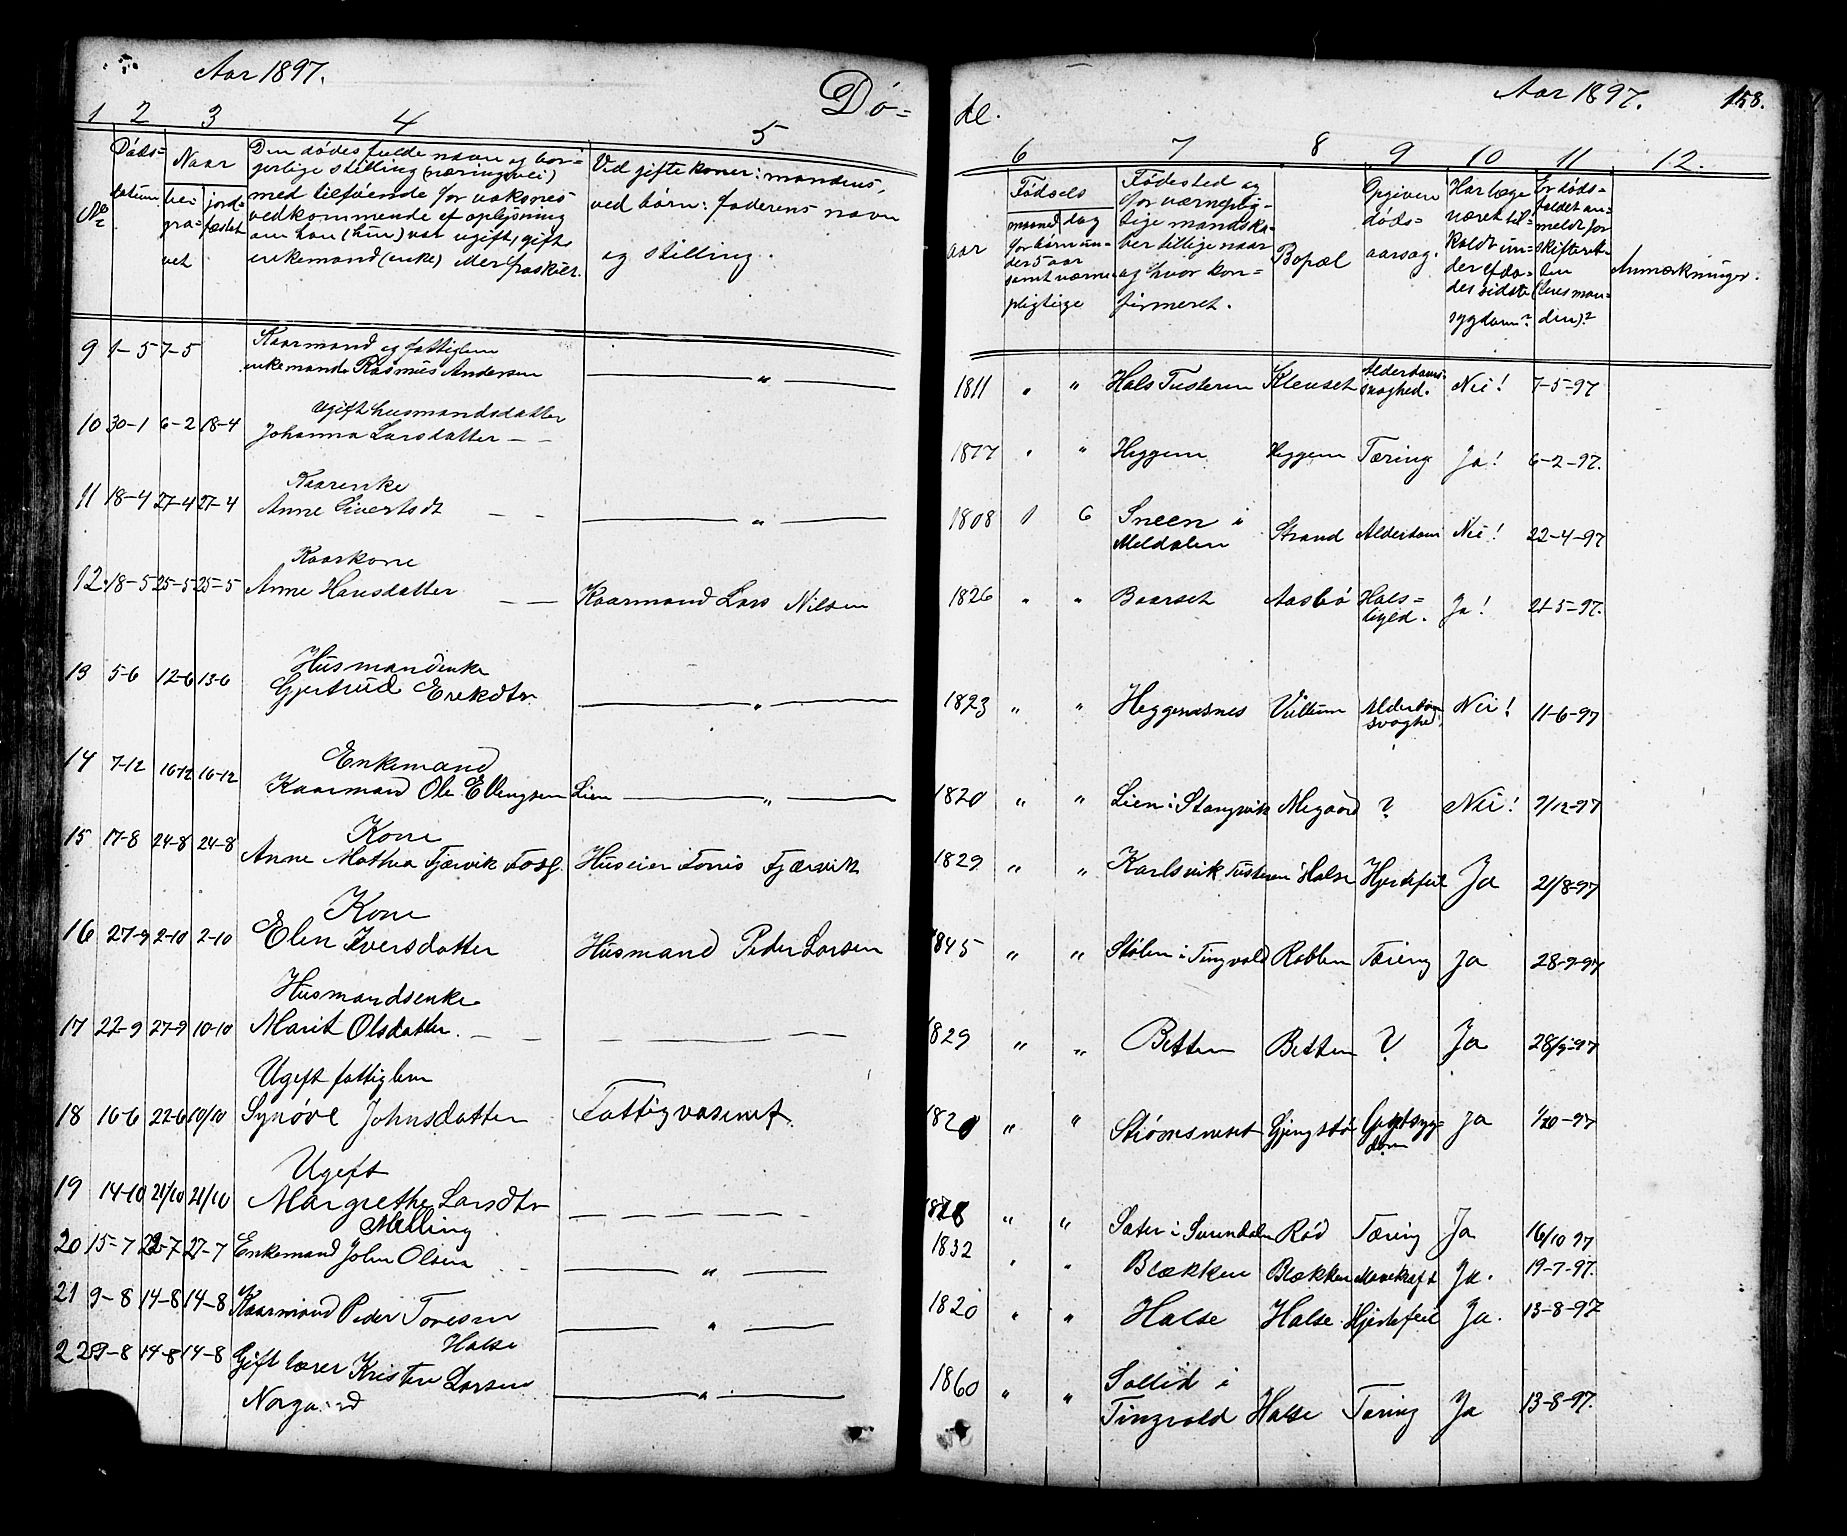 Aar 1897.
Dø-
1 2 3 4 5
Døds-
datum
No
Naar
be-
gra-
vet
jord-
fæstet
Den dødes fulde navn og bor-
gerlige stilling (næringsvei)
med tilføiende for voksnes
vedkommende et oplysning
om han (hun) var ugift, gift
enkemand (enke) eller fraskilt.
Ved gifte koner: mandens,
ved børn: faderens navn
og stilling.
9 1-5 7-5 Kaarmand og fattiglem
enkemand Rasmus Andersen — " —
10 30-1 6-2 18-4 Ugift husmandsdatter
Johanna Larsdatter — —
11 18-4 27-4 27-4 Kaarenke
Anne Sivertsdt — — — " —
12. 18-5 25-5 25-5 Kaarkone
Anne Hansdatter — — Kaarmand Lars Nilsen
13 5-6 12-6 13-6 Husmandsenke
Gjertrud Erekdtr — " —
14 7-12 16-12 16-12 Enkemand
Kaarmand Ole Ellingsen Lien — " —
15 17-8 24-8 24-8 Kone
Anne Mathea Fjærvik Huseier Tørris Fjærvik
16 27-9 2-10 2-10 Kone
Elen Iversdatter Husmand Peder Larsen
17 22-9 27-9 10-10 Husmandsenke
Marit Olsdatter. — — — — —
18 16-6 22-6 10/10 Ugift fattiglem
Synøve Johnsdatter Fattigvæsenet
19 14-10 21/10 21/10 Ugift
Margrethe Larsdtr — — — —
Melling
20 15-7 22-7 27-7 Enkemand John Olsen — " —
21 9-8 14-8 14-8 Kaarmand Peder Toresen — " —
Halse
22 9-8 14-8 14-8 Gift lærer Kristen Larsen
Norgaard — " —
de.
Aar 1897. 158.
6 7 8 9 10 11 12.
Fødsels
aar
maaned
for børn un-
der 5 aar
samt værne-
pligtige
dag
Fødested og
for værneplig-
tige mandska-
ber tillige naar
og hvor kon-
firmeret.
Bopæl
Opgiven
døds-
aarsag.
Har læge
været til-
kaldt un-
der afdø-
des sidste
sygdom?
Er døds-
faldet an-
meldt for
skifteret-
ten
(lensman-
den)?
Anmærkninger.
1811 " " Hals Tusteren Klevset Alderdoms-
svaghed. Nei! 7-5-97
1877 " " Heggem Heggem Tæring Ja! 6-2-97.
1808 1 6 Sneen i
Meldalen Strand Alderdom Nei! 22-4-97
1826 " " Baarset Aasbø Hals-
byld. Ja! 21-5-97.
1823 " " Heggenæsnes Vullum Alderdom
svaghed Nei! 11-6-97
1820 " " Lien i Stangvik Megaard ? Nei! 9/12-97
1829 " " Karlsvik Tusteren i Halse Hjertefeil Ja 21/8-97
1845 " " Stølen i Tingvold Rablen Tæring Ja 28-9-97
1829 " " Betten Betten ? Ja 28/9-97
1820 " " Strømsneset Gjengstø Ja 1/10-97
" " Sæter i Surendalen Rød Tæring Ja 16/10 97
1832 " " Blækken Blækken Ja. 19-7-97.
1820 " " Halse Halse. Hjertefeil Ja. 13-8-97
1860 " " Sollid i
Tingvold Halse Tæring Ja 13-8-97.